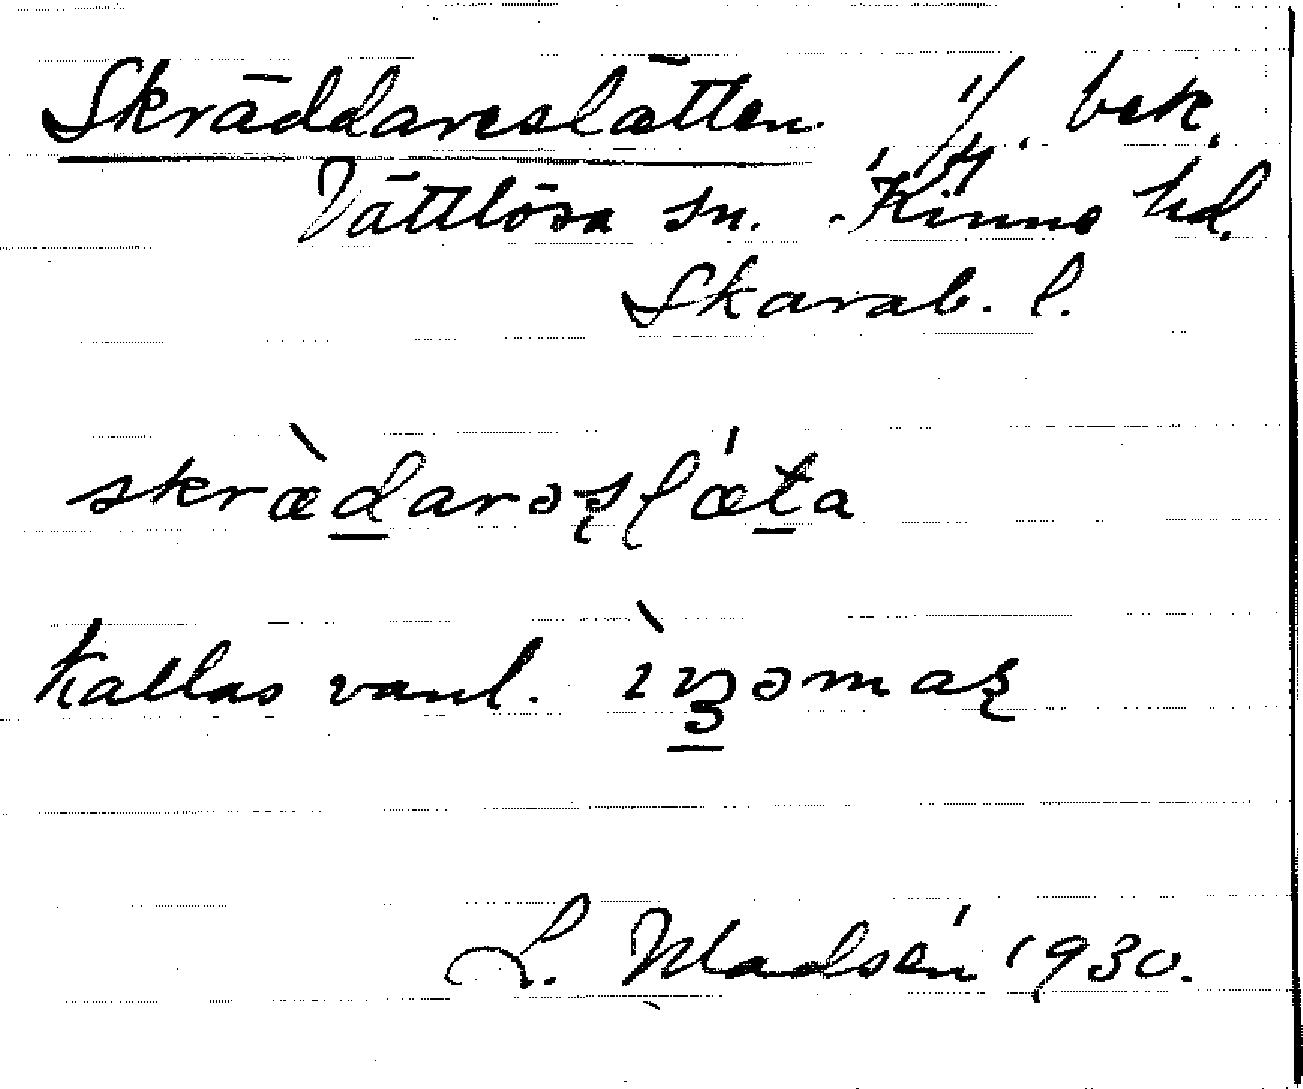 Skräddareslätten 1/4. bek.
Vättlösa sn. Kinne hd.
Skarab. l.
skræ̀darəslǽta
kallas vanl.
L. Madsén 1930.